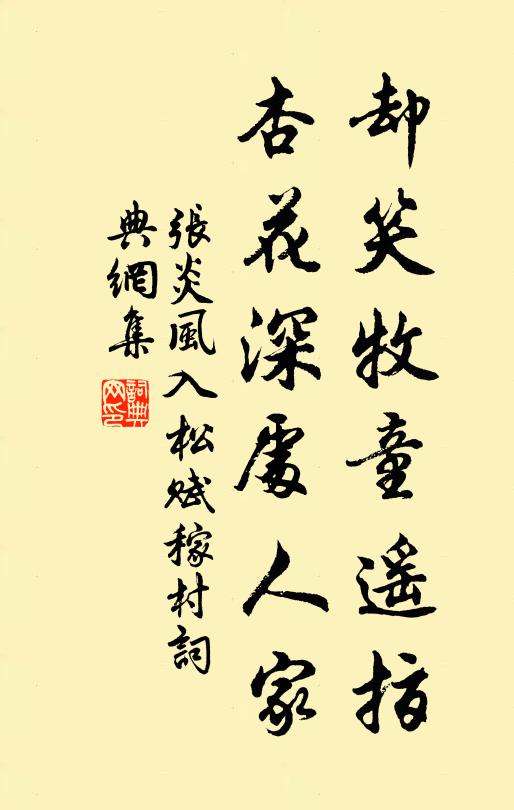 却笑牧童遥指
杏花深處人家
張炎風入松赋稼村詞
典網集
詞典网印